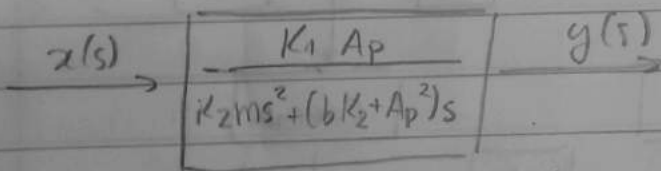 x(s)
K₁ Ap
y(s)
K₂ms²+(bK₂+Ap²)s